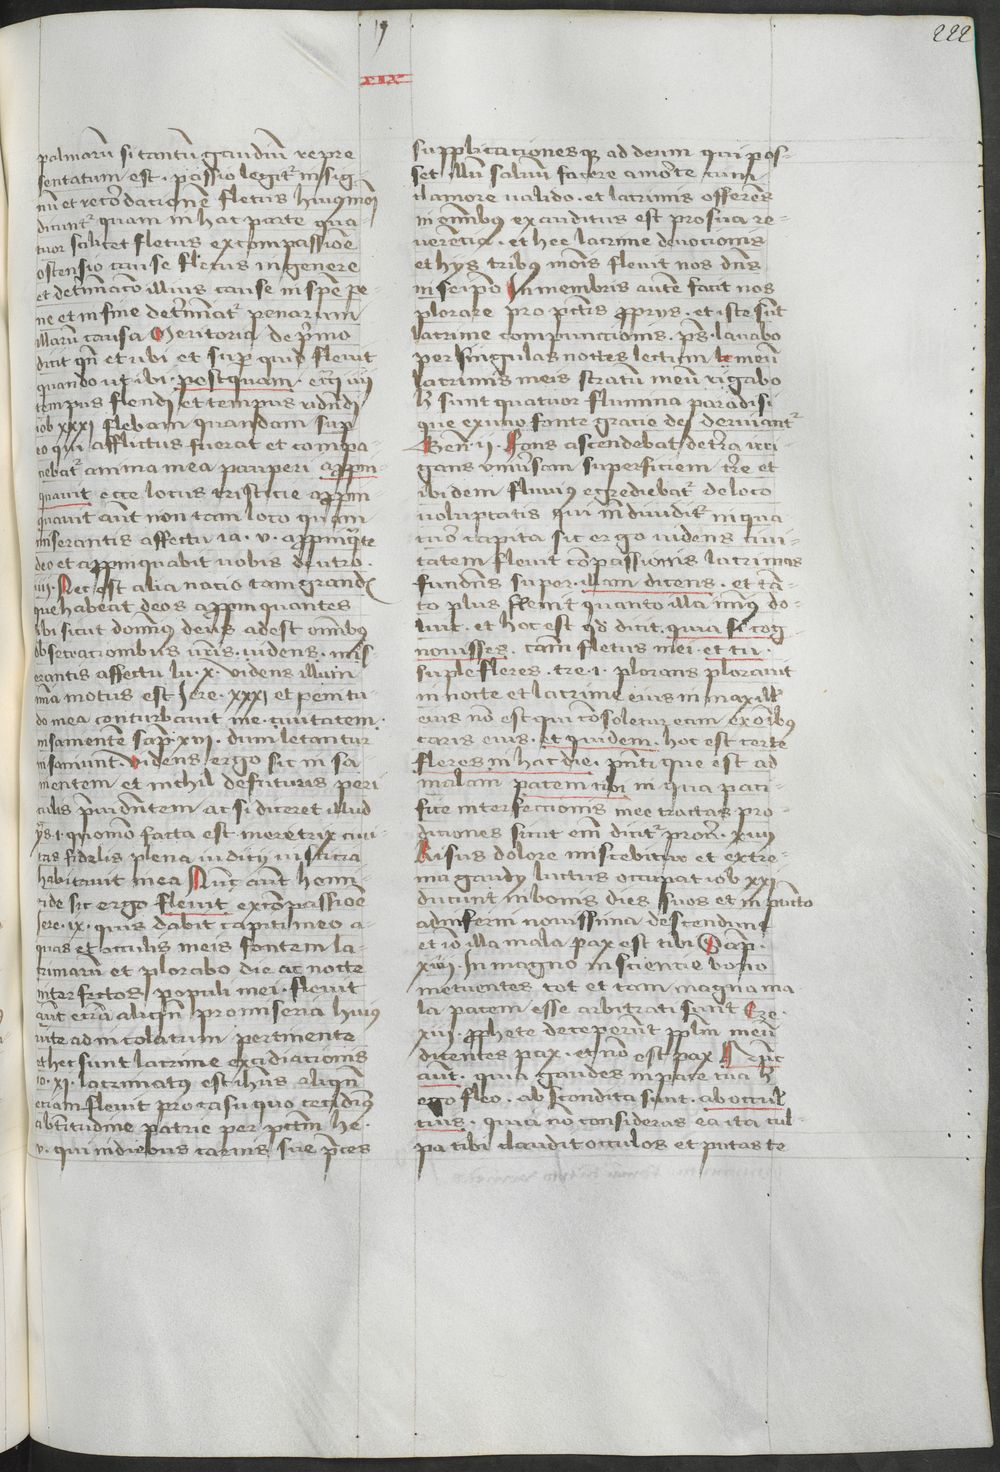 19
222
xix
palmarū si tantū gaudiū repre
sentatum est. passio legit᷑ in sig-
nū et recordacionē fletus huiusmōi
dicunt᷑ quam in hac parte qua
tuor scilicet fletus ex compassione
ostensio cause fletus in genere
et detīnacō illius cause in spē pe-
ne et in fine det'minat᷑ penarum
illarū causa Meritoria de p'mo
dicit qn̄ et ubi et sup quid fleuit
quando ut ibi. postquam. ecc͡i iii
tempus flendi et tempus ridendi
iob xxxi flebam quandam sup
eo qui afflictus fuerat et compa-
ciebat᷑ anima mea pauperi appin-
quauit ecce locus tristicie appin-
quauit aūt non tam loco quam
miserantis affectu ia. v. appinq̄te
deo et appinquabit uobis deutro.
iiii. Nec est alia nacio tam grandis
que habeat deos appinquantes
sibi sicut dominꝰ deus adest omībꝰ
obsecracionibus nr̄is. uidens. mis-
erantis affectu lu. x. Videns illum
mīa motus est Jere. xxxi et penitu-
do mea conturbauit me. ciuitatem.
insanientē sap. xiiii. dum letantur
insaniunt. Videns ergo sic insa
nientem et nichil de futuris peri
culis p̄uidentem ac si diceret illud
ys. i. quomō facta est meretrix ciui
tas fidelis plena iudicij iusticia
habitauit in ea Nunc aūt homi-
cide sic ergo fleuit ex compassiōe
Jere. ix. quis dabit capiti meo a-
quas et occulis meis fontem la-
crimarū et plorabo die ac nocte
interfectos populi mei. fleuit
aūt etiā aliqn̄ pro miseria huiꝰ
uite ad incolatum pertinente
et hec sunt lacrime
io. xi. lacrimatus est ihūs aliqn̄
etiam fleuit pro casu quo cecidimꝰ
a b̄titudine patrie per pctm̄ he.
v. qui in diebus carnis sue p̄ces
supplicacionesqꝫ ad deum qui pos-
set illū saluū facere a morte cum
clamore ualido. et lacrimis offerēs
in ōmibus exauditus est pro sua re-
uerēcia. et hec lacrime deuocionis
et hys tribꝰ mōis fleuit nos dn̄s
in seip̄o In membris autē facit nos
plorare pro pctīs p̄prijs. et iste sūt
lacrime compunctionis. ps̄. lauabo
per singulas noctes lectum meū
lacrimis meis stratū meū rigabo
h̄ sunt quatuor flumina paradisi
que ex uno fonte gracie dei deriuant᷑
Gen̄ ii. Fons ascendebat de t'ra irri-
gans uniuersam superficiem t're et
ibidem fluuius egrediebat᷑ de loco
uoluptatis qui inde diuidit᷑ in qua
tuor capita sic ergo uidens ciui-
tatem fleuit compassionis lacrimas
fundens super. illam dicens. et tā-
to plus fleuit quanto illa minꝰ do-
luit. et hoc est qd̄ dicit. quia si cog-
nouisses. cām fletus mei. et tu.
suple fleres. tre. i. plorans plorauit
in nocte et lacrime eius in maxillꝭ
eius nō est qui cōsoletur eam ex ōibꝰ
caris eius. et quidem. hoc est certe
fleres in hac die. pn̄ti que est ad
malam pacem tibi in qua paci-
fice interfectionis mee tractas pro-
diciones sicut em̄ dicit᷑ prou'. xiiii
Risus dolore miscebitur et extre-
ma gaudij luctus occupat iob xxi
ducunt in bonis dies suos et in pūcto
ad inferni nouissima descendunt
et iō illa mala pax est tibi Sap.
xiiii. In magno inscientie bono
metuentes tot et tam magna ma-
la pacem esse arbitrati sunt Eze.
xiii. prophete deceperūt ppl̄m meū
dicentes pax. et nō est pax Nunc
aūt. quia gaudes in pace tua h̄
ego fleo. abscondita sunt. ab occul
tuis. quia nō consideras ea ita cul-
pa tibi claudit occulos et putas te